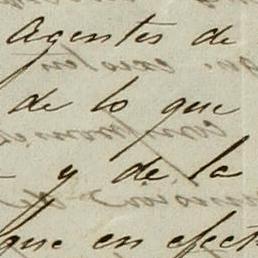 Agentes de
de lo que
y de la
que en efect